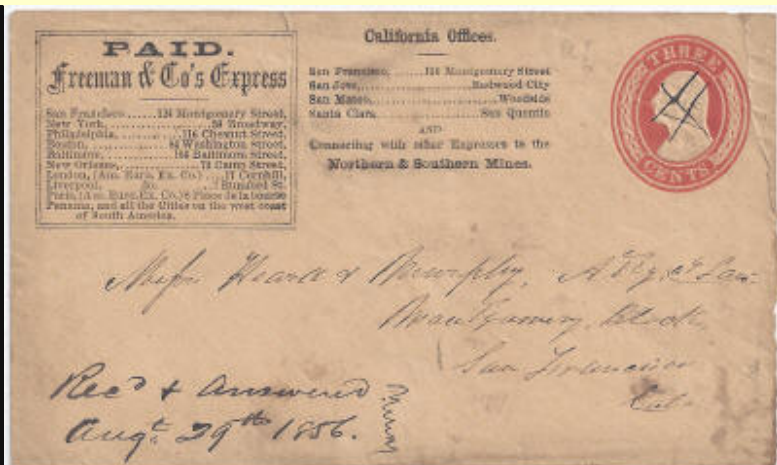 PAID.
Freeman & Co's Express
San Francisco......124 Montgomery Street,
New York,............59 Broadway,
Philadelphia,......116 Chesnut Street,
Boston,......84 Washington Street,
Baltimore,......164 Baltimore Street,
New Orleans,......72 Camp Street,
London, (Am. Euro. Ex. Co.) 17 Cornhill,
Liverpool, do. Rumford St.
Paris, (Am. Euro. Ex. Co.) 8 Place de la bourse
Panama, and all the Cities on the west coast
of South America.
California Offices.
San Francisco,......124 Montgomery Street
San Jose,......Redwood City
San Mateo,......Woodside
Santa Clara......San Quentin
AND
Connecting with other Expresses to the
Northern & Southern Mines.
THREE
CENTS
Messrs & Murphy,
Montgomery Block,
San Francisco
Cal
Recd & Answered
Augt. 29th 1856.